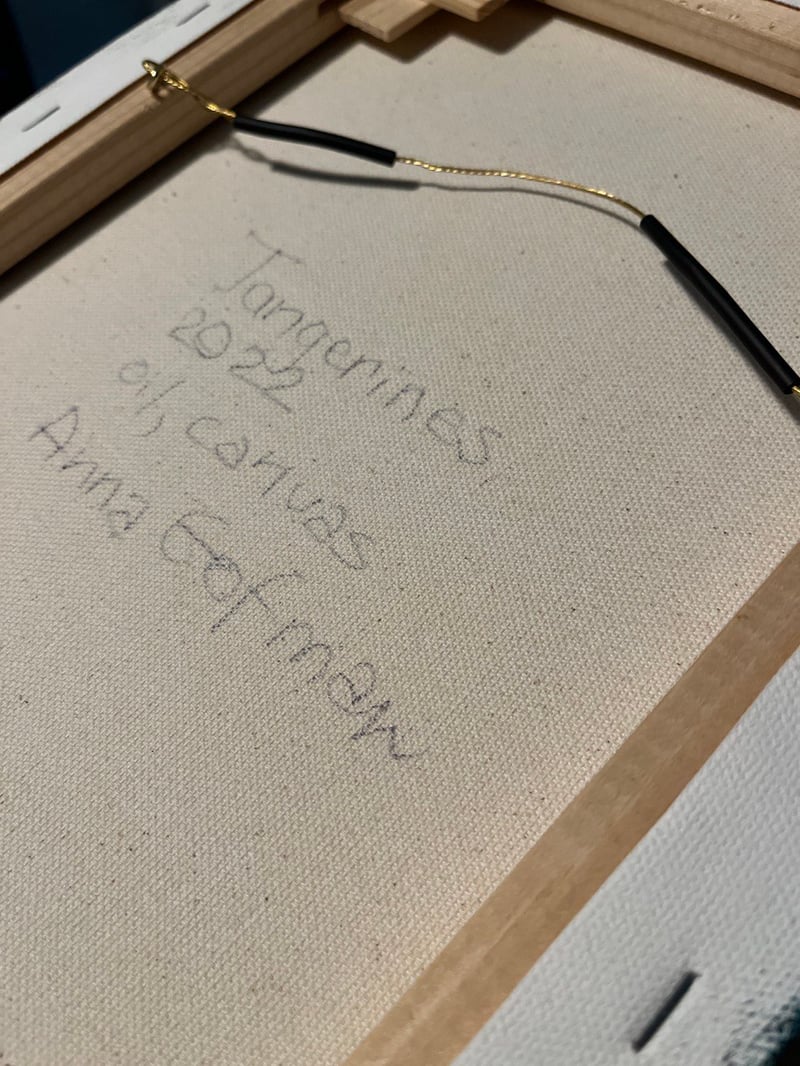 Tangerines
2022
oil, canvas
Anna Gofman